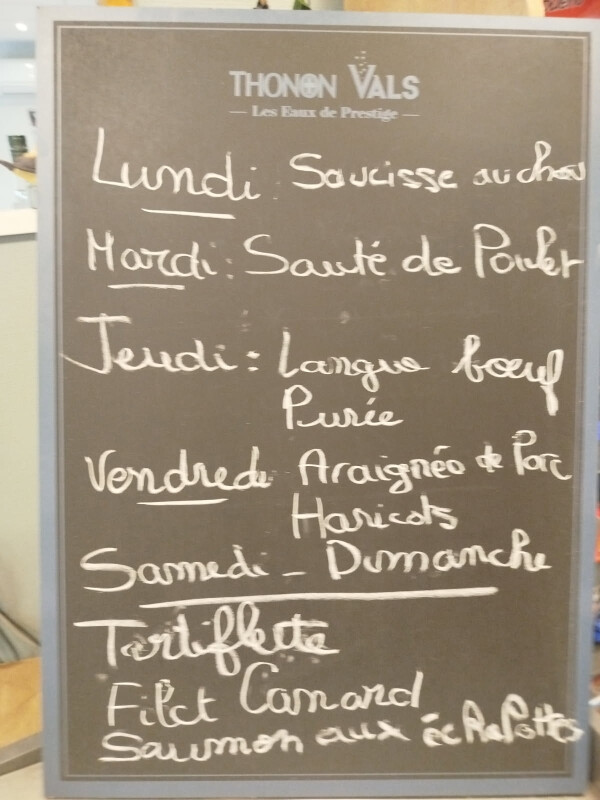 THONON VALS
Les Eaux de Prestige
Lundi Saucisse au chou
Mardi: Sauté de Poulet
Jeudi: Langue boeuf
Purée
Vendredi Araignée de Porc
Haricots
Samedi - Dimanche
Tartiflette
Filet Canard
Saumon aux échalottes